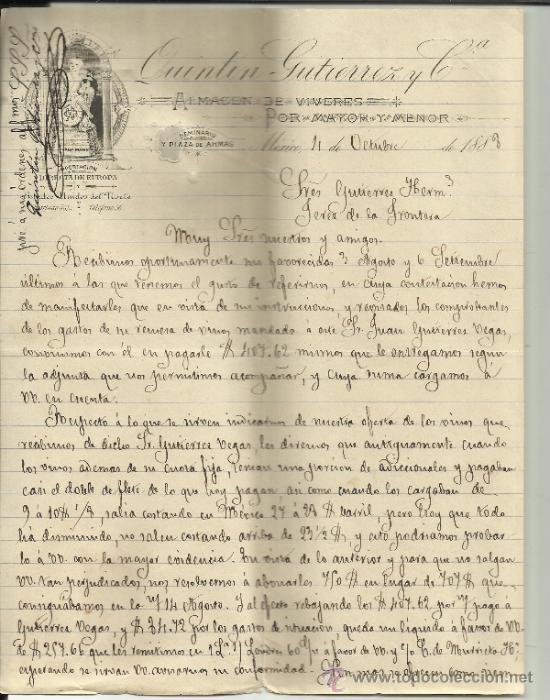 Quintin Gutierrez y Cª
ALMACEN DE VIVERES
POR MAYOR Y MENOR
SEMINARIO
Y PLAZA DE ARMAS
México, 4 de Octubre de 1888
IMPORTACION
DIRECTA DE EUROPA
giré á mi órdenes al mos
Quintin Gutierrez
Sres Gutierrez Hermˢ
Jerez de la Frontera
Muy Sres nuestros y amigos.
Recibimos oportunamente sus favorecidas 3 Agosto y 6 Setiembre
últimos á las que tenemos el gusto de referirnos, en cuya contestación hemos
de manifestarles que en vista de sus instrucciones, y revisados los comprobantes
de los gastos de su remesa de vinos mandada á este Sr. Juan Gutierrez Vegas,
convinimos con él en pagarle $ 407.62 mismos que le entregamos segun
la adjunta que nos permitimos acompañar, y cuya suma cargamos á
VV. en cuenta.
Respecto á lo que se sirven indicarnos de nuestra oferta de los vinos que
recibimos de dicho Sr. Gutierrez Vegas, les diremos que antiguamente cuando
los vinos ademas de su cuota fija, tenian una porcion de adicionales y pagaban
casi el doble de flete de lo que hoy pagan, asi como cuando los cargaban de
9 á 10 salia costando en México 27 á 28 $ barril, pero hoy que todo
há disminuido, no salen costando arriba de 22½ $, y esto podriamos probar
lo á VV. con la mayor evidencia. En vista de lo anterior y para que no salgan
VV. tan perjudicados, nos resolvemos á abonarles en lugar de 707 $ que
consignabamos en la n/ 14 Agosto. Y al efecto rebajando los $ 407.62 por n/ pago á
Gutierrez Vegas, y $ 34.72 por los gastos de situacion, queda un liquido á favor de VV.
de $ 257.66 que les remitimos en 1 L/ Londres 60 d/v á favor de VV. y c/ C. de Murrieta Hˢ
esperando se sirvan VV. avisarnos su conformidad.
todocoleccion.net